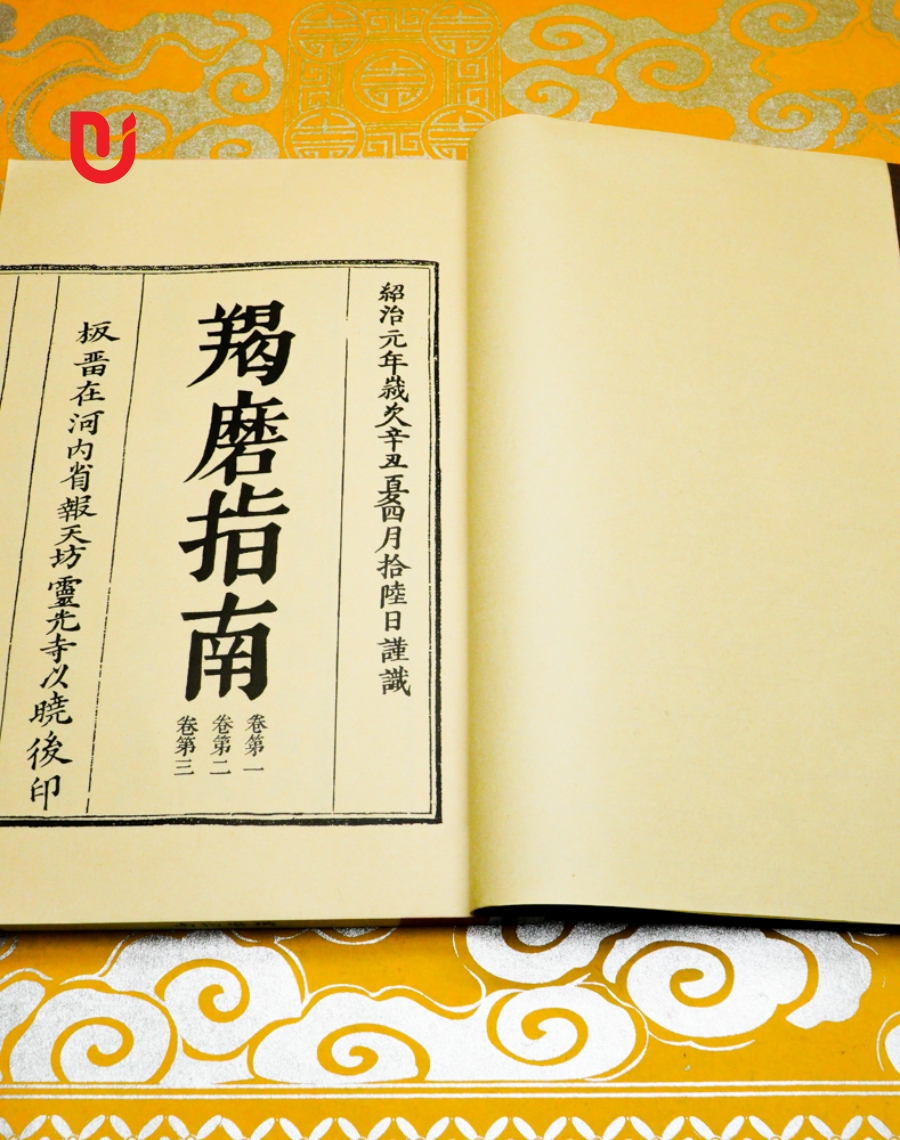 紹治元年歲次辛丑夏四月拾陸日謹識
羯磨指南
卷第一
卷第二
卷第三
板畱在河内省報天坊靈光寺以曉後印